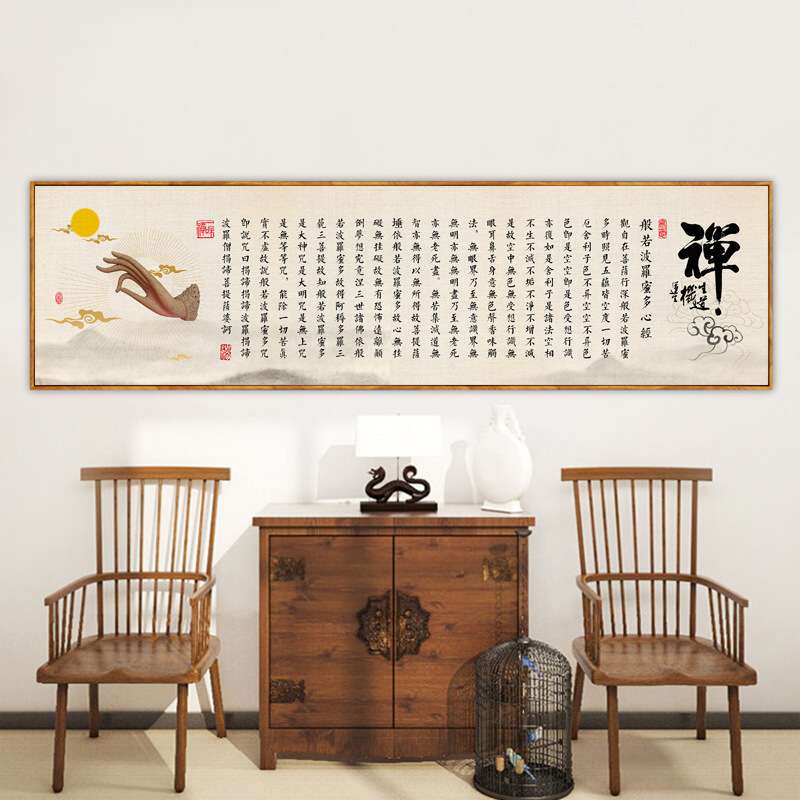 禪
般若波羅蜜多心經
觀自在菩薩行深般若波羅蜜
多時照見五蘊皆空度一切苦
厄舍利子色不异空空不异色
色即是空空即是色受想行識
亦復如是舍利子是諸法空相
不生不滅不垢不淨不增不減
是故空中無色無受想行識無
眼耳鼻舌身意無色聲香味觸
法。無眼界乃至無意識界無
無明亦無無明盡乃至無老死
亦無老死盡。無苦集滅道無
智亦無得以無所得故菩提薩
埵依般若波羅蜜多故心無挂
礙無挂礙故無有恐怖遠離顛
倒夢想究竟涅三世諸佛依般
若波羅蜜多故得阿耨多羅三
藐三菩提故知般若波羅蜜多
是大神咒是大明咒是無上咒
是無等等咒。能除一切苦真
實不虛故說般若波羅蜜多咒
即說咒曰揭諦揭諦波羅揭諦
波羅僧揭諦菩提薩婆訶